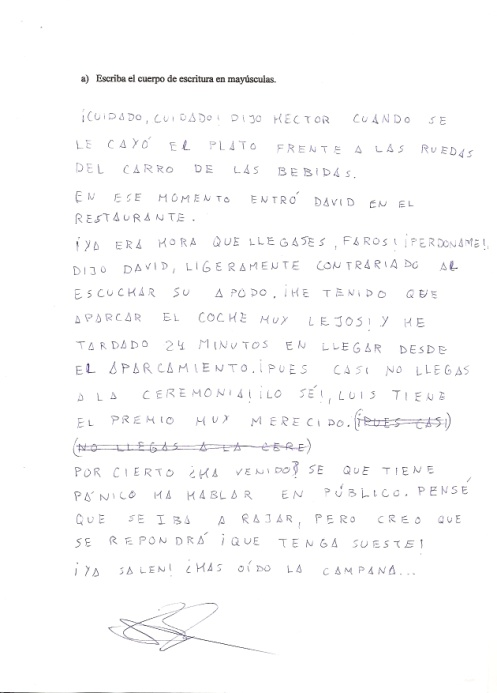 a) Escriba el cuerpo de escritura en mayúsculas.
¡CUIDADO, CUIDADO! DIJO HÉCTOR CUANDO SE
LE CAYÓ EL PLATO FRENTE A LAS RUEDAS
DEL CARRO DE LAS BEBIDAS.
EN ESE MOMENTO ENTRÓ DAVID EN EL
RESTAURANTE.
¡YA ERA HORA QUE LLEGASES, FAROS! ¡PERDONAME!,
DIJO DAVID, LIGERAMENTE CONTRARIADO AL
ESCUCHAR SU APODO. ¡HE TENIDO QUE
APARCAR EL COCHE MUY LEJOS! Y HE
TARDADO 24 MINUTOS EN LLEGAR DESDE
EL APARCAMIENTO. ¡PUES CASI NO LLEGAS
A LA CEREMONIA! ¡LO SÉ!, LUIS TIENE
EL PREMIO MUY MERECIDO. (¡PUES CASI)
(NO LLEGAS A LA CERE)
POR CIERTO ¿HA VENIDO? SE QUE TIENE
PÁNICO HA HABLAR EN PÚBLICO. PENSÉ
QUE SE IBA A RAJAR, PERO CREO QUE
SE REPONDRÁ ¡QUE TENGA SUESTE!
¡YA SALEN! ¿HAS OÍDO LA CAMPANA...